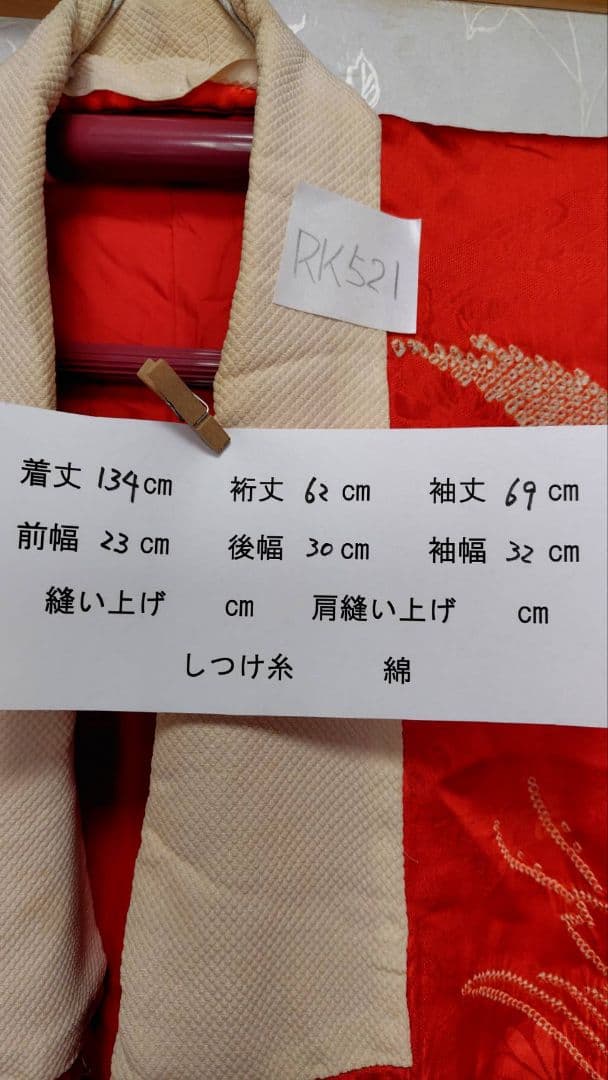 RK521
着丈 134cm 裄丈 62cm 袖丈 69cm
前幅 23cm 後幅 30cm 袖幅 32cm
縫い上げ cm 肩縫い上げ cm
しつけ糸 綿